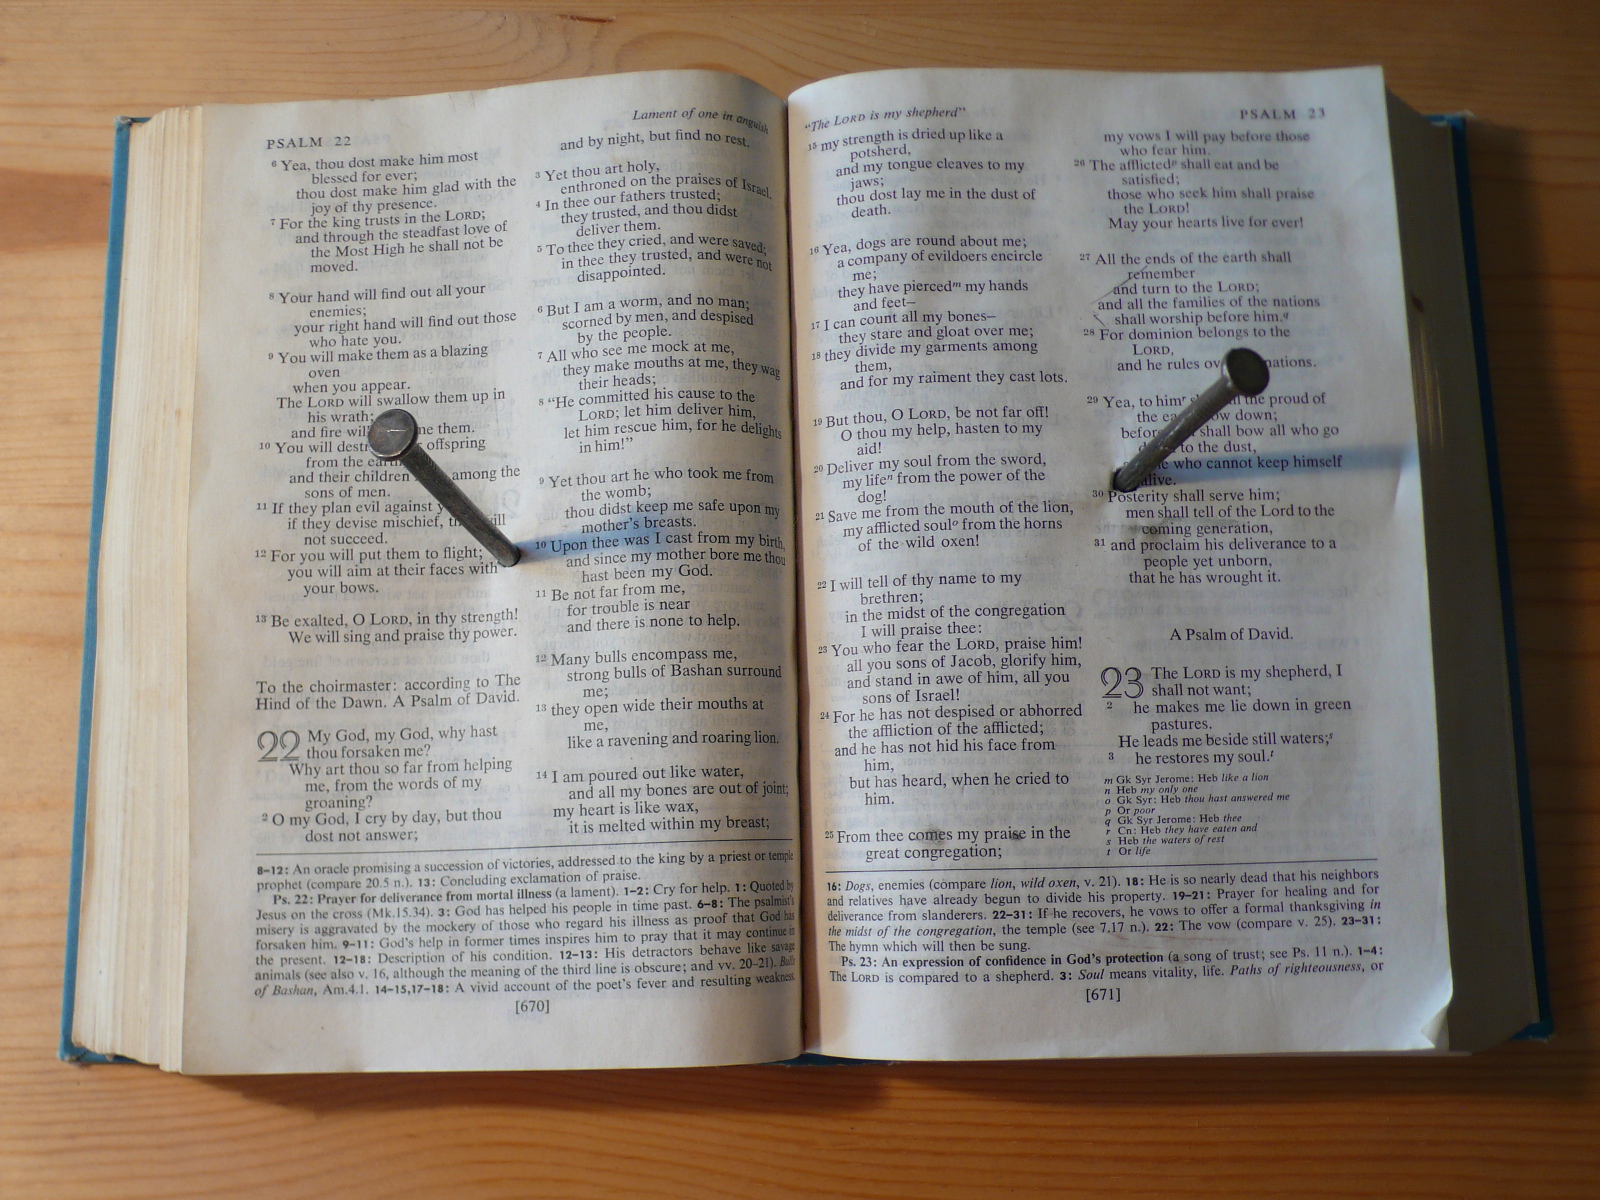 PSALM 22
Lament of one in anguish
6 Yea, thou dost make him most
blessed for ever;
thou dost make him glad with the
joy of thy presence.
7 For the king trusts in the LORD;
and through the steadfast love of
the Most High he shall not be
moved.
8 Your hand will find out all your
enemies;
your right hand will find out those
who hate you.
9 You will make them as a blazing
oven
when you appear.
The LORD will swallow them up in
his wrath;
and fire will me them.
10 You will destr offspring
from the earth
and their children among the
sons of men.
11 If they plan evil against y
if they devise mischief, ill
not succeed.
12 For you will put them to flight;
you will aim at their faces with
your bows.
13 Be exalted, O LORD, in thy strength!
We will sing and praise thy power.
To the choirmaster: according to The
Hind of the Dawn. A Psalm of David.
22 My God, my God, why hast
thou forsaken me?
Why art thou so far from helping
me, from the words of my
groaning?
2 O my God, I cry by day, but thou
dost not answer;
and by night, but find no rest.
3 Yet thou art holy,
enthroned on the praises of Israel.
4 In thee our fathers trusted;
they trusted, and thou didst
deliver them.
5 To thee they cried, and were saved;
in thee they trusted, and were not
disappointed.
6 But I am a worm, and no man;
scorned by men, and despised
by the people.
7 All who see me mock at me,
they make mouths at me, they wag
their heads;
8 "He committed his cause to the
LORD; let him deliver him,
let him rescue him, for he delights
in him!"
9 Yet thou art he who took me from
the womb;
thou didst keep me safe upon my
mother's breasts.
10 Upon thee was I cast from my birth,
and since my mother bore me thou
hast been my God.
11 Be not far from me,
for trouble is near
and there is none to help.
12 Many bulls encompass me,
strong bulls of Bashan surround
me;
13 they open wide their mouths at
me,
like a ravening and roaring lion.
14 I am poured out like water,
and all my bones are out of joint;
my heart is like wax,
it is melted within my breast;
8-12: An oracle promising a succession of victories, addressed to the king by a priest or temple
prophet (compare 20.5 n.). 13: Concluding exclamation of praise.
Ps. 22: Prayer for deliverance from mortal illness (a lament). 1-2: Cry for help. 1: Quoted by
Jesus on the cross (Mk.15.34). 3: God has helped his people in time past. 6-8: The psalmist's
misery is aggravated by the mockery of those who regard his illness as proof that God has
forsaken him. 9-11: God's help in former times inspires him to pray that it may continue in
the present. 12-18: Description of his condition. 12-13: His detractors behave like savage
animals (see also v. 16, although the meaning of the third line is obscure; and vv. 20-21). Bulls
of Bashan, Am.4.1. 14-15,17-18: A vivid account of the poet's fever and resulting weakness.
[670]
"The LORD is my shepherd"
PSALM 23
15 my strength is dried up like a
potsherd,
and my tongue cleaves to my
jaws;
thou dost lay me in the dust of
death.
16 Yea, dogs are round about me;
a company of evildoers encircle
me;
they have pierced m my hands
and feet—
17 I can count all my bones—
they stare and gloat over me;
18 they divide my garments among
them,
and for my raiment they cast lots.
19 But thou, O LORD, be not far off!
O thou my help, hasten to my
aid!
20 Deliver my soul from the sword,
my life n from the power of the
dog!
21 Save me from the mouth of the lion,
my afflicted soul o from the horns
of the wild oxen!
22 I will tell of thy name to my
brethren;
in the midst of the congregation
I will praise thee:
23 You who fear the LORD, praise him!
all you sons of Jacob, glorify him,
and stand in awe of him, all you
sons of Israel!
24 For he has not despised or abhorred
the affliction of the afflicted;
and he has not hid his face from
him,
but has heard, when he cried to
him.
25 From thee comes my praise in the
great congregation;
my vows I will pay before those
who fear him.
26 The afflicted p shall eat and be
satisfied;
those who seek him shall praise
the LORD!
May your hearts live for ever!
27 All the ends of the earth shall
remember
and turn to the LORD;
and all the families of the nations
shall worship before him. q
28 For dominion belongs to the
LORD,
and he rules ov nations.
29 Yea, to him r the proud of
the ea ow down;
before shall bow all who go
to the dust,
who cannot keep himself
alive.
30 Posterity shall serve him;
men shall tell of the Lord to the
coming generation,
31 and proclaim his deliverance to a
people yet unborn,
that he has wrought it.
A Psalm of David.
23 The LORD is my shepherd, I
shall not want;
2 he makes me lie down in green
pastures.
He leads me beside still waters; s
3 he restores my soul. t
m Gk Syr Jerome: Heb like a lion
n Heb my only one
o Gk Syr: Heb thou hast answered me
p Or poor
q Gk Syr Jerome: Heb thee
r Cn: Heb they have eaten and
s Heb the waters of rest
t Or life
16: Dogs, enemies (compare lion, wild oxen, v. 21). 18: He is so nearly dead that his neighbors
and relatives have already begun to divide his property. 19-21: Prayer for healing and for
deliverance from slanderers. 22-31: If he recovers, he vows to offer a formal thanksgiving in
the midst of the congregation, the temple (see 7.17 n.). 22: The vow (compare v. 25). 23-31:
The hymn which will then be sung.
Ps. 23: An expression of confidence in God's protection (a song of trust; see Ps. 11 n.). 1-4:
The LORD is compared to a shepherd. 3: Soul means vitality, life. Paths of righteousness, or
[671]